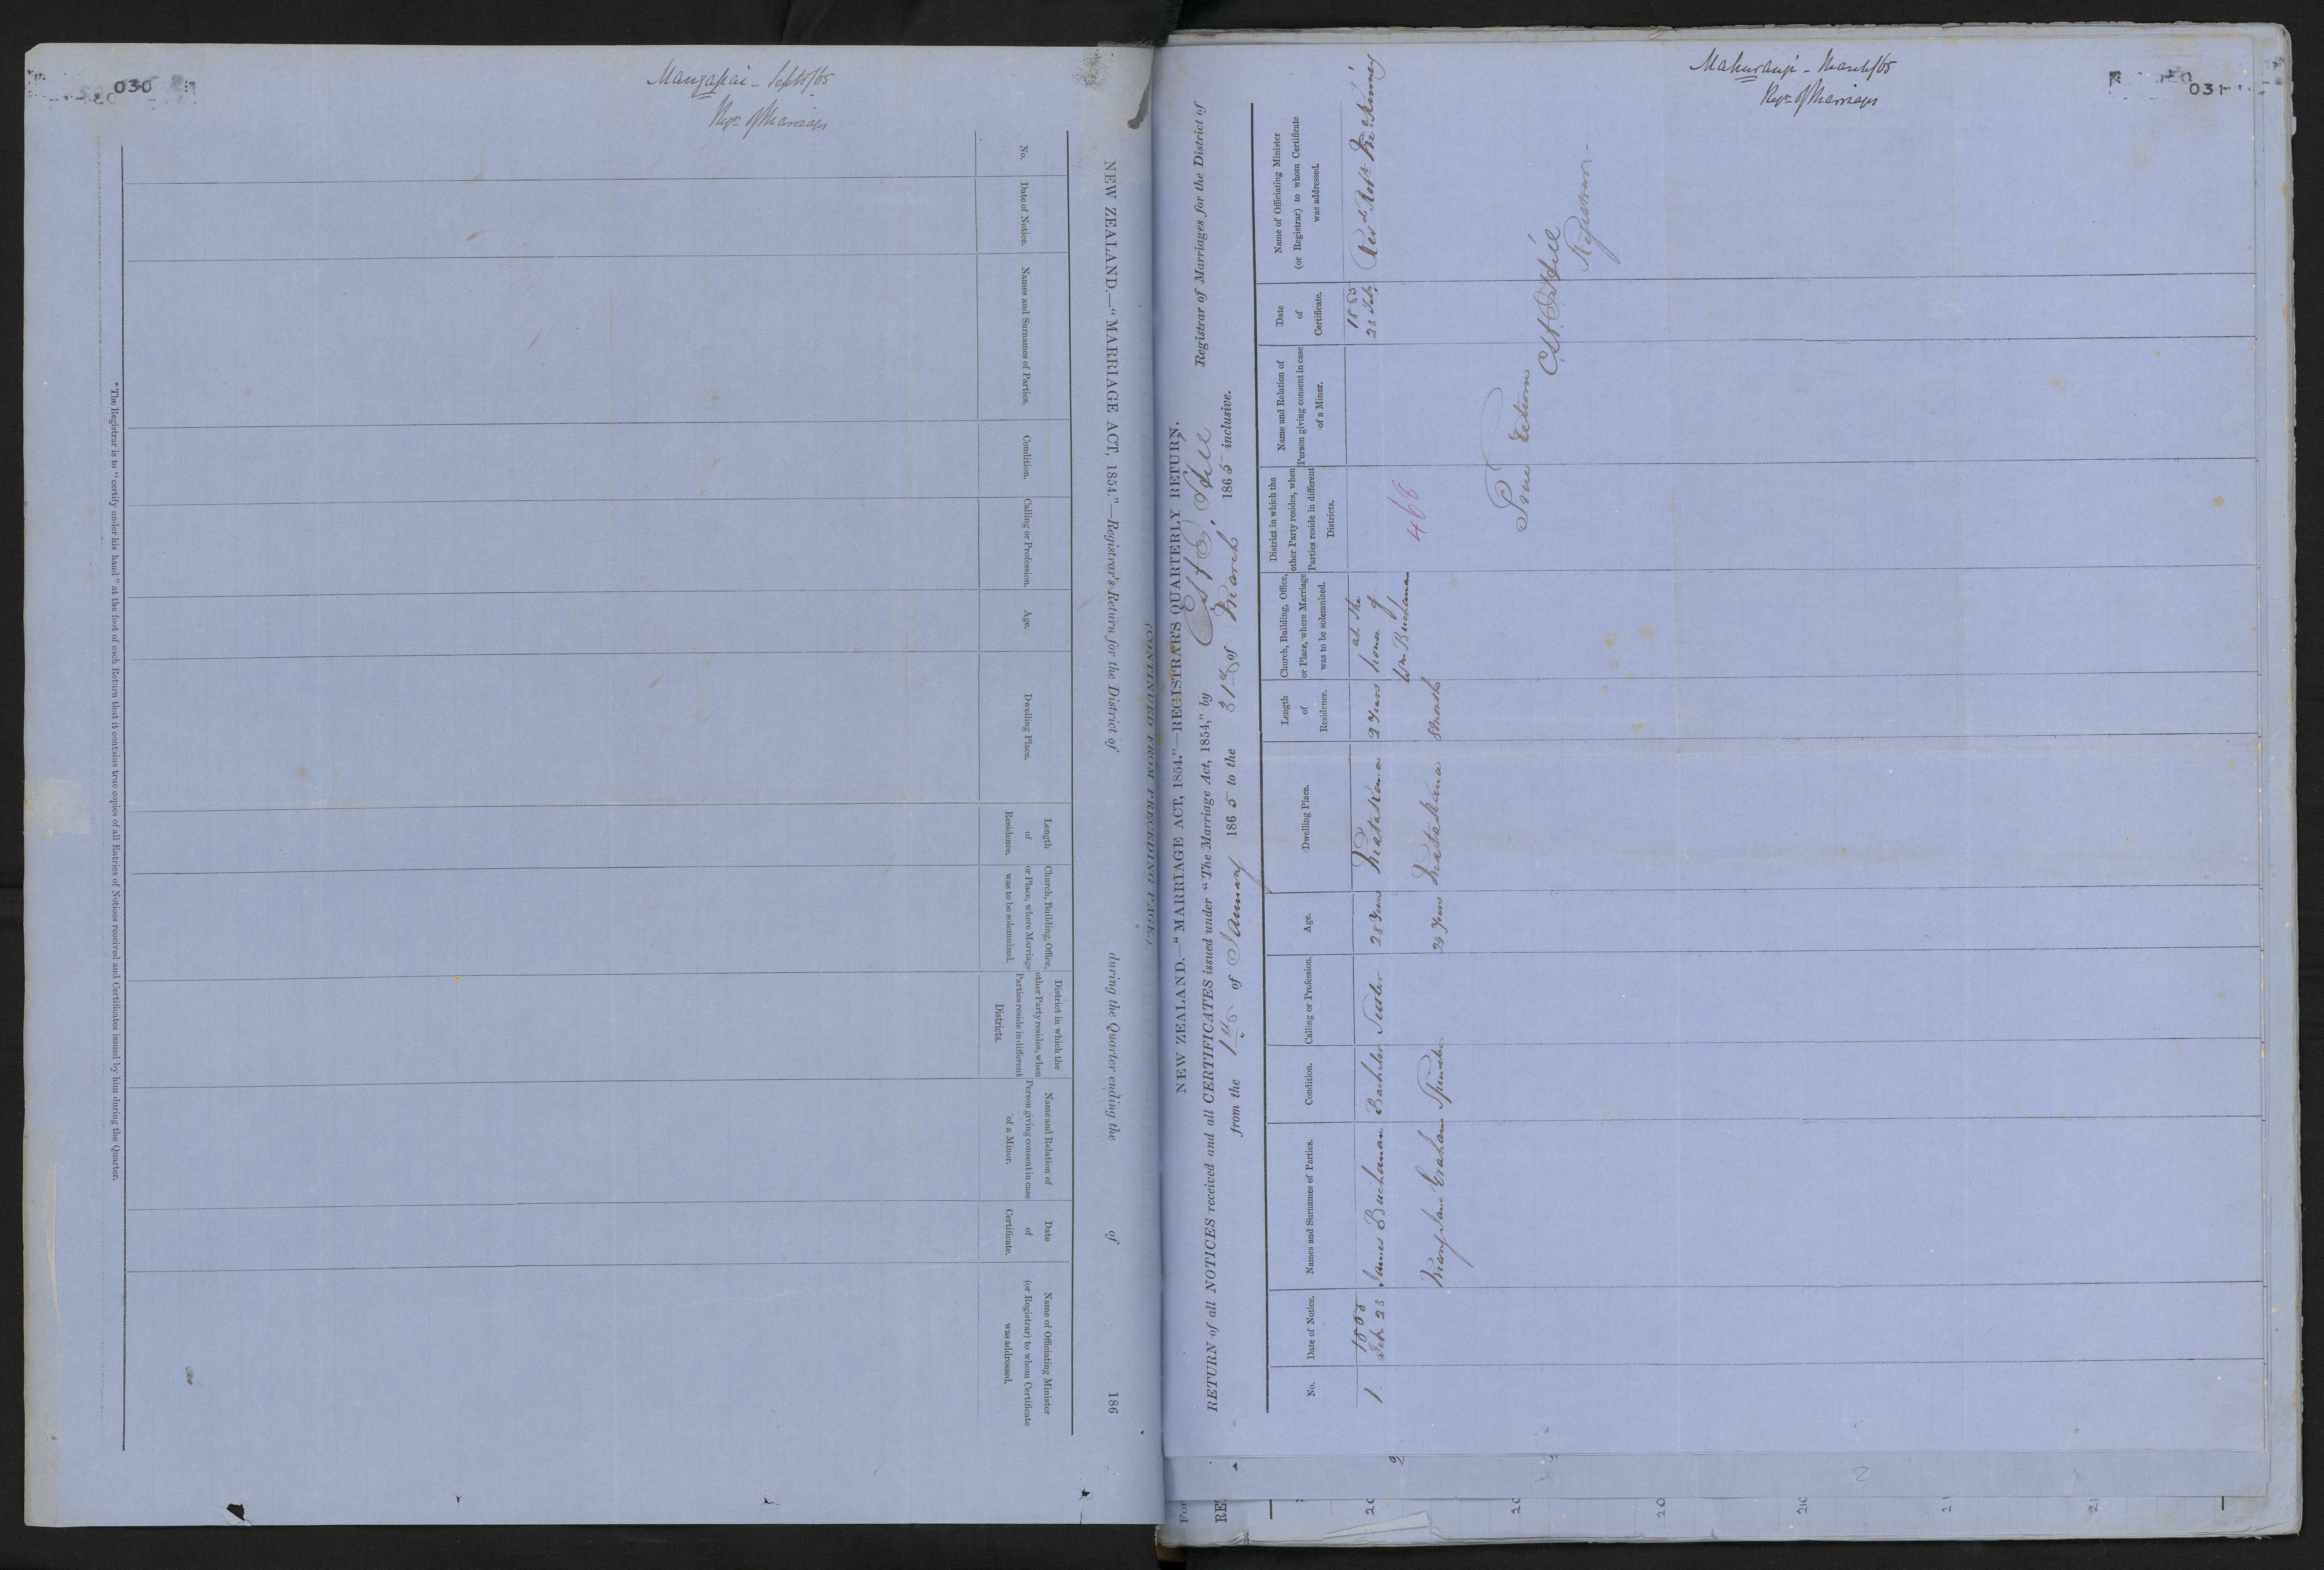 030
Mangapai - Sept/65
Regr of Marriages
NEW ZEALAND.—"MARRIAGE ACT, 1854."—Registrar's Return for the District of during the Quarter ending the of 186
(CONTINUED FROM PRECEDING PAGE.)
No.
Date of Notice.
Names and Surnames of Parties.
Condition.
Calling or Profession.
Age.
Dwelling Place.
Length of Residence.
Church, Building, Office, or Place, where Marriage was to be solemnized.
District in which the other Party resides, when Parties reside in different Districts.
Name and Relation of Person giving consent in case of a Minor.
Date of Certificate.
Name of Officiating Minister (or Registrar) to whom Certificate was addressed.
*The Registrar is to "certify under his hand" at the foot of each Return that it contains true copies of all Entries of Notices received and Certificates issued by him during the Quarter.
Mahurangi - March/65
Regr of Marriages
031
NEW ZEALAND.—"MARRIAGE ACT, 1854."—REGISTRAR'S QUARTERLY RETURN.
RETURN of all NOTICES received and all CERTIFICATES issued under "The Marriage Act, 1854," by Registrar of Marriages for the District of
from the 1st of January 1865 to the 31st of March 1865 inclusive.
No.
Date of Notice.
Names and Surnames of Parties.
Condition.
Calling or Profession.
Age.
Dwelling Place.
Length of Residence.
Church, Building, Office, or Place, where Marriage was to be solemnized.
District in which the other Party resides, when Parties reside in different Districts.
Name and Relation of Person giving consent in case of a Minor.
Date of Certificate.
Name of Officiating Minister (or Registrar) to whom Certificate was addressed.
1 1865 Feb 23 James Buchanan Bachelor Settler 28 Years Matakana 2 Years at the house of Wm Buchanan 1865 23 Feb Revd Robt McKinney
Mary Jane Graham Spinster 24 Years Matakana 8 Months
468
True Return
Registrar -